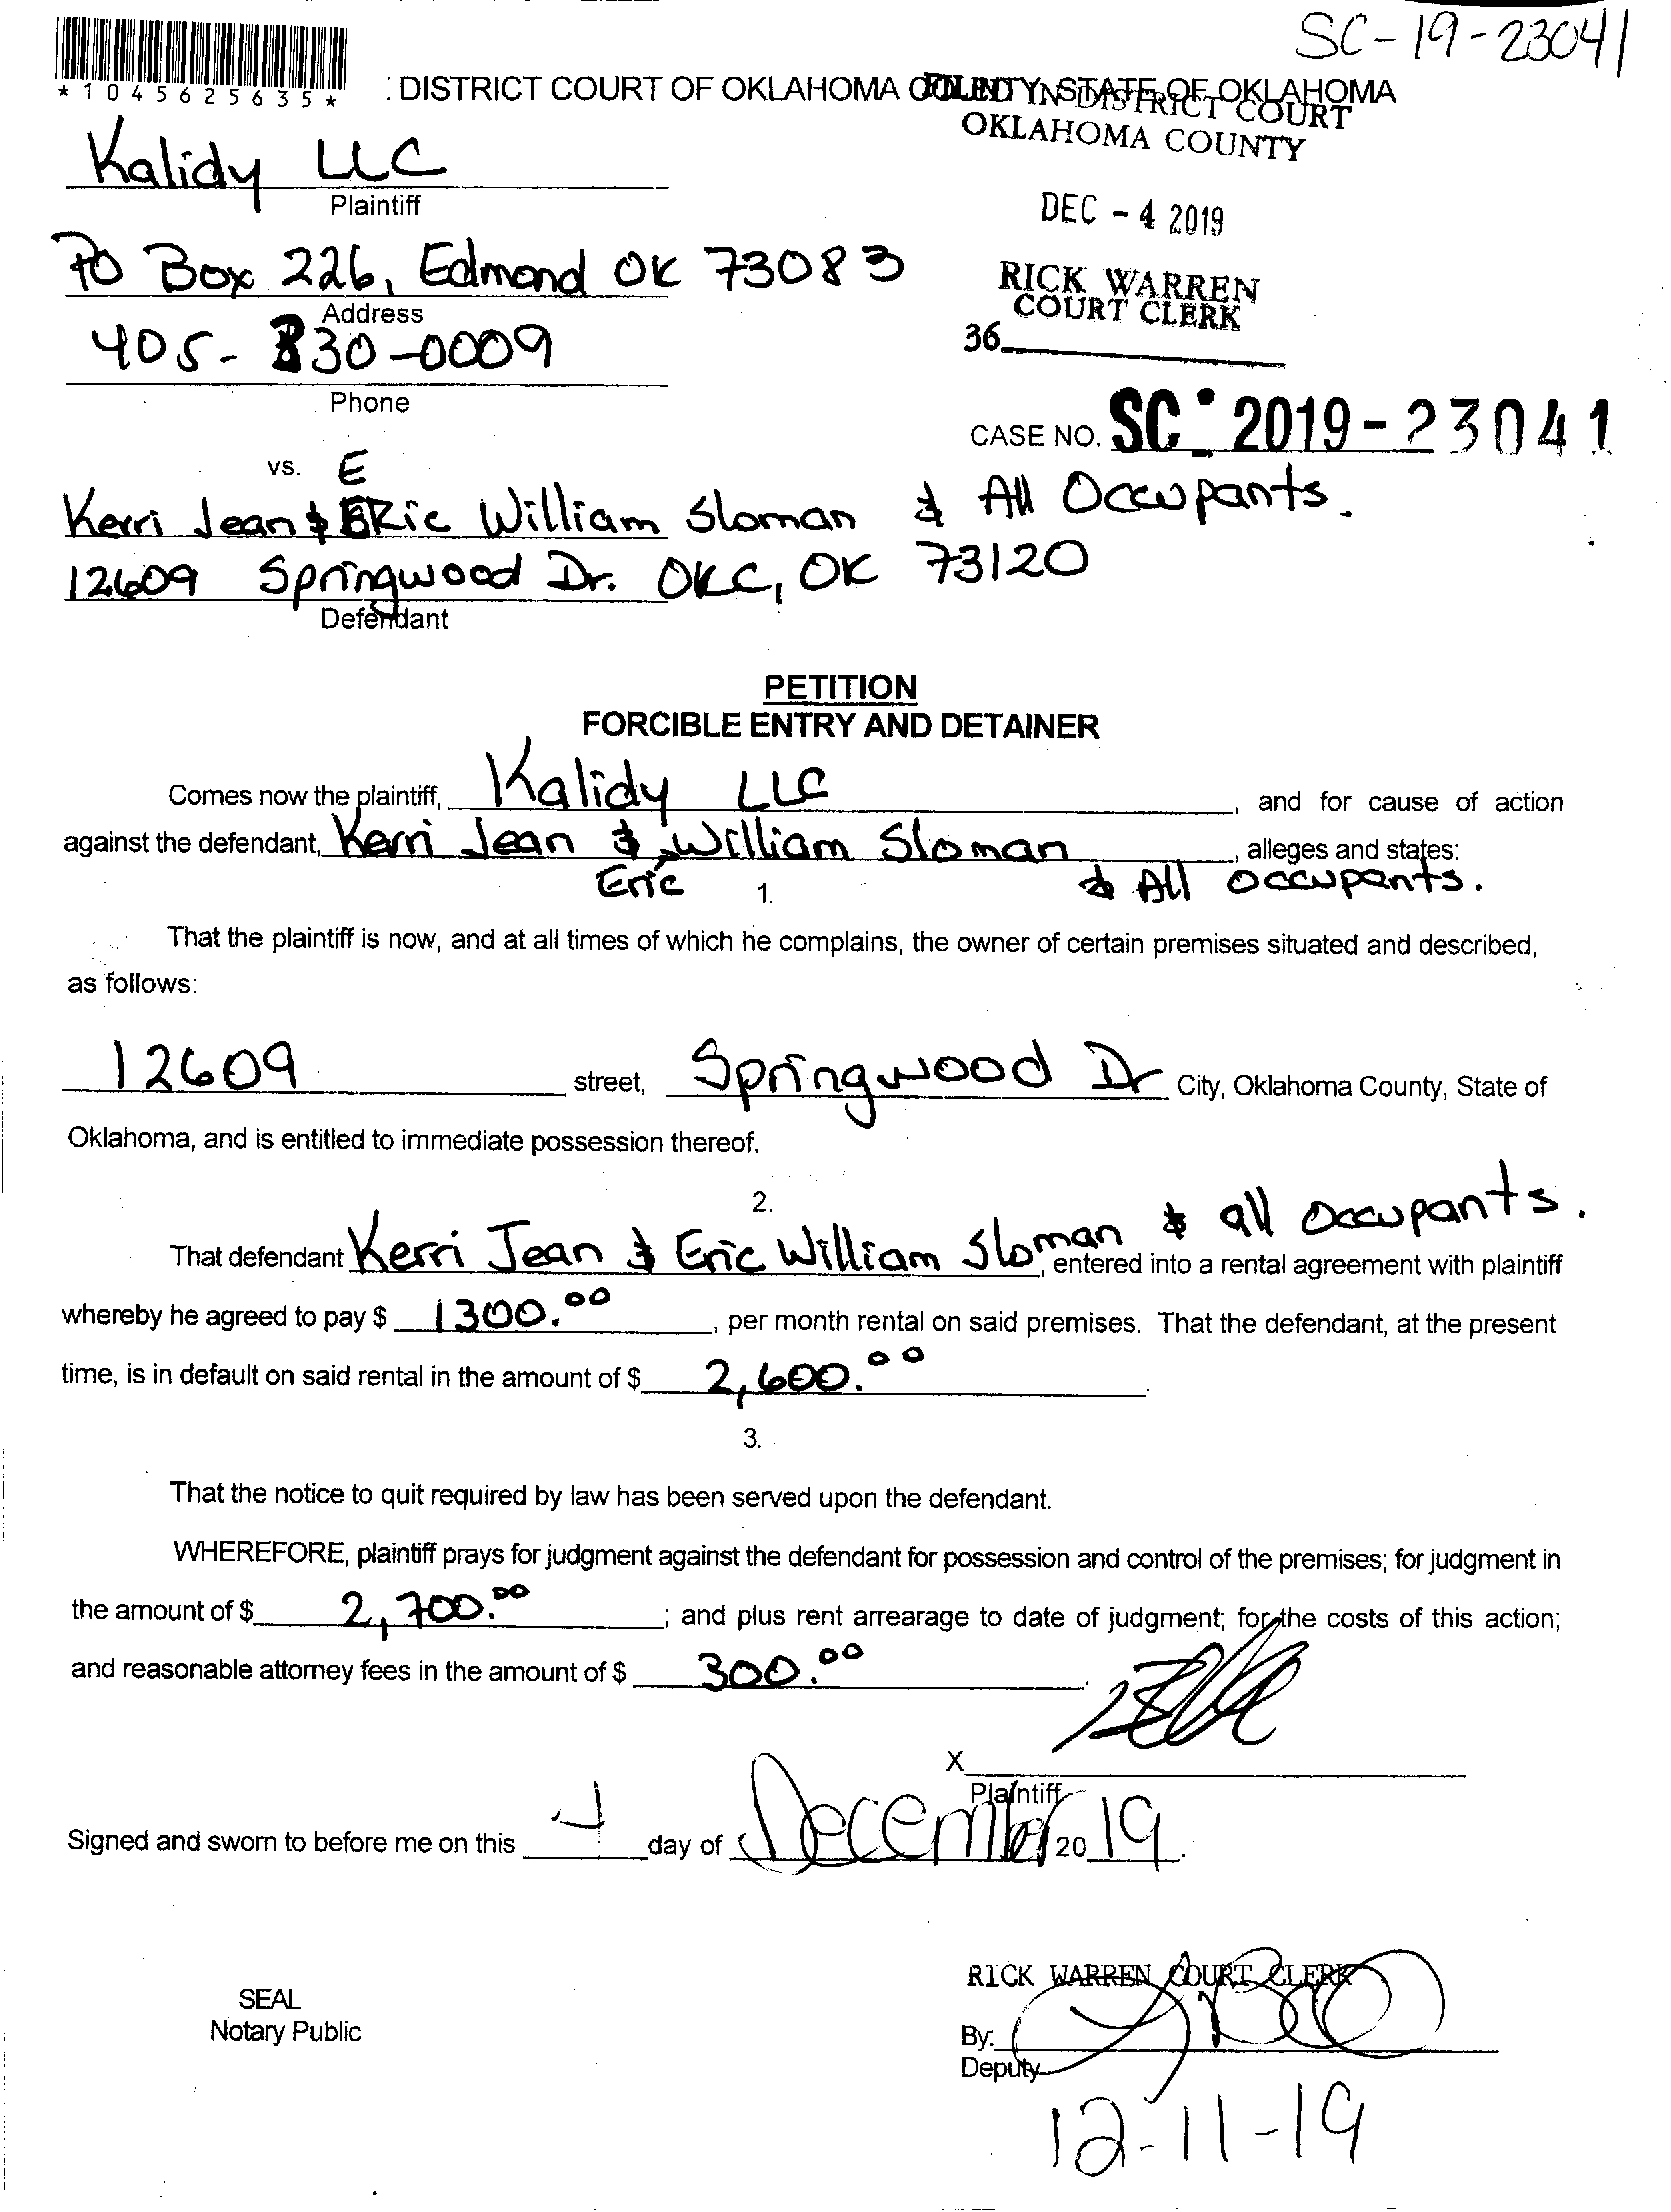 SC-19-23041
*1045625635*
: DISTRICT COURT OF OKLAHOMA COUNTY, STATE OF OKLAHOMA
FILED IN DISTRICT COURT
OKLAHOMA COUNTY
Kalidy LLC
Plaintiff
DEC - 4 2019
PO Box 226, Edmond OK 73083
Address
RICK WARREN
COURT CLERK
36
405- 330-0009
Phone
CASE NO. SC 2019-23041
vs. E
Kerri Jean & ERic William Sloman & All Occupants.
12609 Springwood Dr. OKC, OK 73120
Defendant
PETITION
FORCIBLE ENTRY AND DETAINER
Comes now the plaintiff, Kalidy LLC, and for cause of action
against the defendant, Kerri Jean & William Sloman, alleges and states:
Eric & All occupants.
1.
That the plaintiff is now, and at all times of which he complains, the owner of certain premises situated and described,
as follows:
12609 street, Springwood Dr City, Oklahoma County, State of
Oklahoma, and is entitled to immediate possession thereof.
2.
That defendant Kerri Jean & Eric William Sloman & all occupants., entered into a rental agreement with plaintiff
whereby he agreed to pay $ 1300.00, per month rental on said premises. That the defendant, at the present
time, is in default on said rental in the amount of $ 2,600.00.
3.
That the notice to quit required by law has been served upon the defendant.
WHEREFORE, plaintiff prays for judgment against the defendant for possession and control of the premises; for judgment in
the amount of $ 2,700.00; and plus rent arrearage to date of judgment; for the costs of this action;
and reasonable attorney fees in the amount of $ 300.00.
X
Plaintiff
Signed and sworn to before me on this 4 day of December 20 19.
RICK WARREN COURT CLERK
SEAL
Notary Public
By:
Deputy
12-11-19